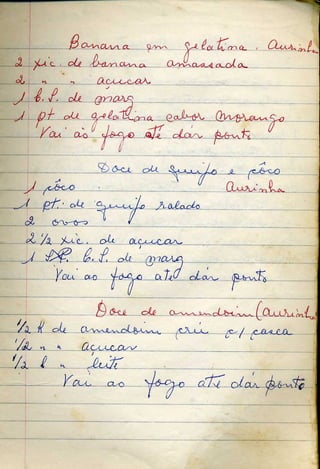 Banana em gelatina. Aurinha
2 xic. de banana amassada
2 " " açucar
1 C. S. de marg
1 pt de gelatina sabor morango
Vai ao fogo até dar ponto
Doce de queijo e côco
1 côco Aurinha
1 pt. de queijo ralado
2 ovos
2 1/2 xic. de açucar
1 C. S. de marg
Vai ao fogo até dar ponto
Doce de amendoim (Aurinha
1/2 k de amendoim crú c/ casca
1/2 " " açucar
1/2 l " leite
Vai ao fogo até dar ponto